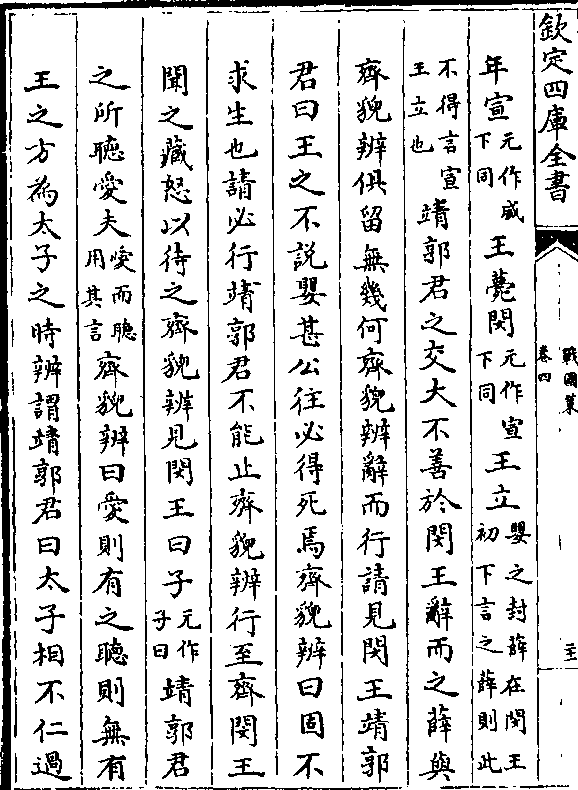 欽定四庫全書
戰國策
卷四
年宣元作威下同王薨閔元作宣下同王立嬰之封薛在閔王初下言之薛則此
不得言宣王立也靖郭君之交大不善於閔王辭而之薛與
齊貌辨俱留無幾何齊貌辨辭而行請見閔王靖郭
君曰王之不說嬰甚公往必得死焉齊貌辨曰固不
求生也請必行靖郭君不能止齊貌辨行至齊閔王
聞之藏怒以待之齊貌辨見閔王曰子元作子曰靖郭君
之所聽愛夫愛而聽用其言齊貌辨曰愛則有之聽則無有
王之方為太子之時辨謂靖郭君曰太子相不仁過